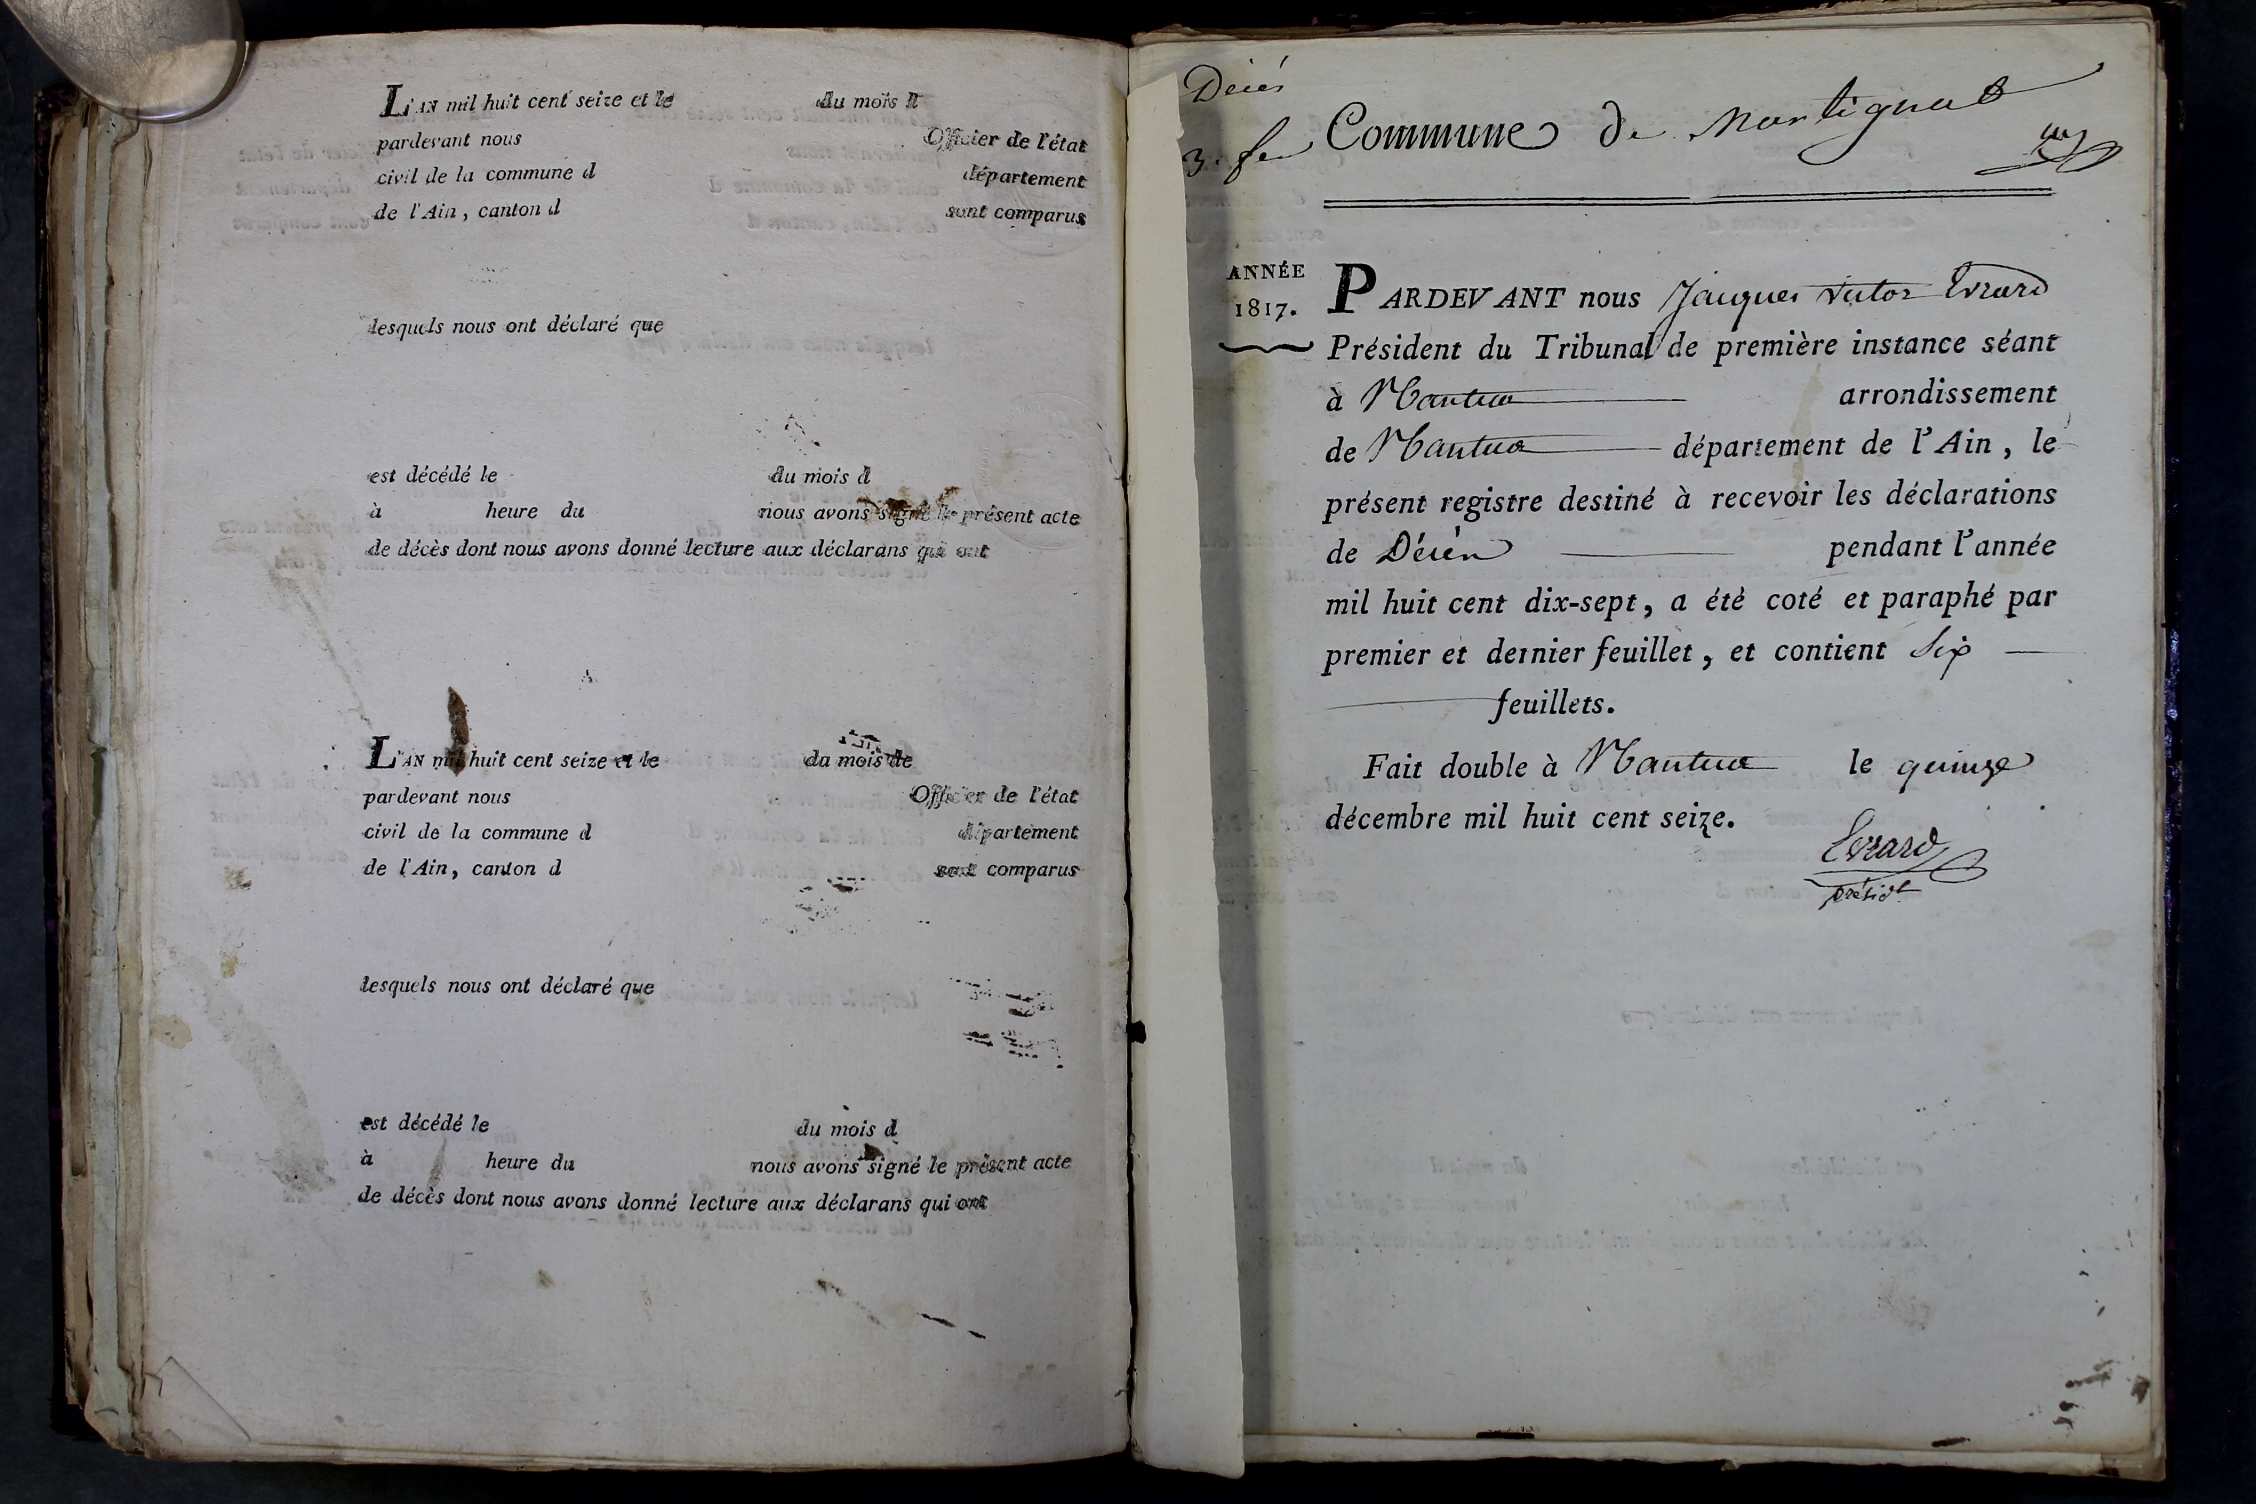 L'AN mil huit cent seize et le du mois d
pardevant nous Officier de l'état
civil de la commune d département
de l'Ain, canton d sont comparus
lesquels nous ont déclaré que
est décédé le du mois d
à heure du nous avons signé le présent acte
de décès dont nous avons donné lecture aux déclarans qui ont
L'AN mil huit cent seize et le du mois de
pardevant nous Officier de l'état
civil de la commune d département
de l'Ain, canton d sont comparus
lesquels nous ont déclaré que
est décédé le du mois d
à heure du nous avons signé le présent acte
de décès dont nous avons donné lecture aux déclarans qui ont
Décès
3. fer
Commune de Martignat
ANNÉE
1817.
PARDEVANT nous Jacques Victor Evrard
Président du Tribunal de première instance séant
à Nantua arrondissement
de Nantua département de l'Ain, le
présent registre destiné à recevoir les déclarations
de Décès pendant l'année
mil huit cent dix-sept, a été coté et paraphé par
premier et dernier feuillet, et contient Six
feuillets.
Fait double à Nantua le quinze
décembre mil huit cent seize.
Evrard
présidt